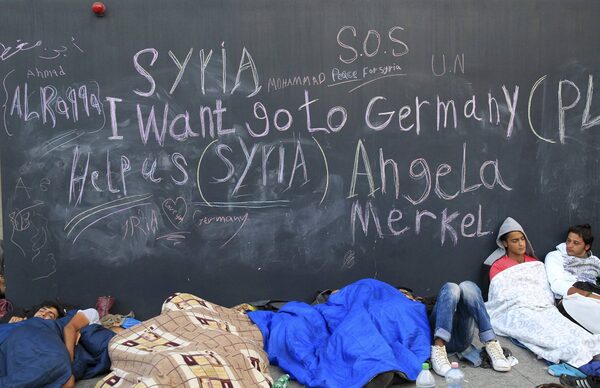 SYRIA S.O.S
Ahmad MOHAMMAD Peace For Syria U.N
ALRaqqa I want go to Germany (PL
Help us (SYRIA) Angela
IRIA Germany Merkel